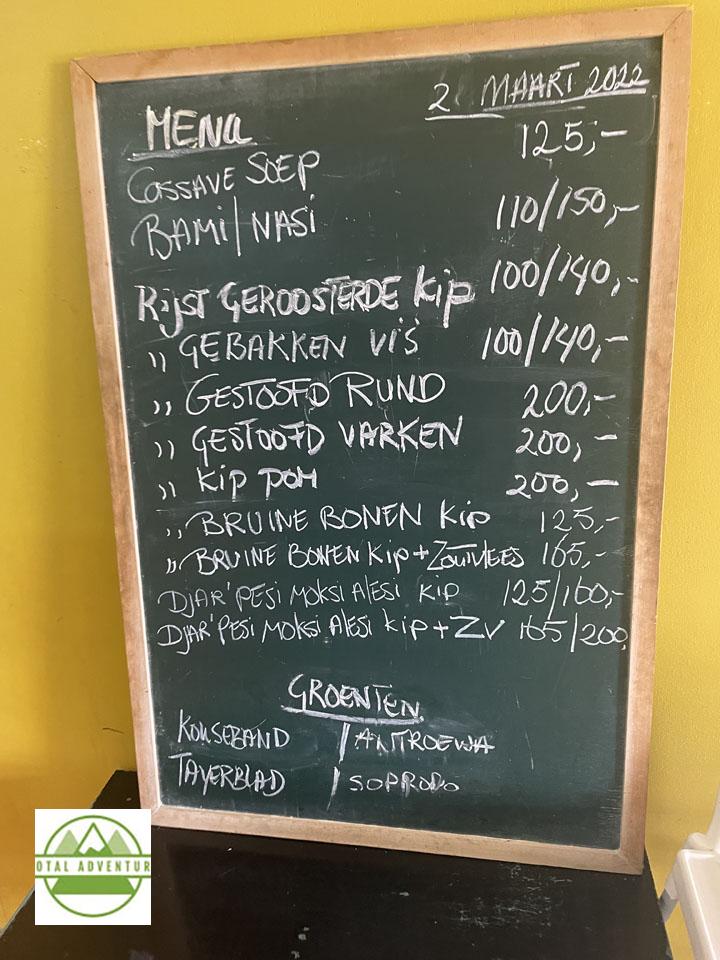 2 MAART 2022
MENU
CASSAVE SOEP 125,-
BAMI/NASI 110/150,-
Rijst GEROOSTERDE Kip 100/140,-
,, GEBAKKEN VIS 100/140,-
,, GESTOOFD RUND 200,-
,, GESTOOFD VARKEN 200,-
,, Kip POM 200,-
,, BRUINE BONEN Kip 125,-
,, BRUINE BONEN Kip + Zoutvlees 165,-
DJAR'PESI MOKSI ALESI Kip 125/160,-
DJAR'PESI MOKSI ALESI Kip + ZV 165/200,
GROENTEN
KOUSEBAND / ANTROEWA
TAYERBLAD / SOPROPO
OTAL ADVENTUR